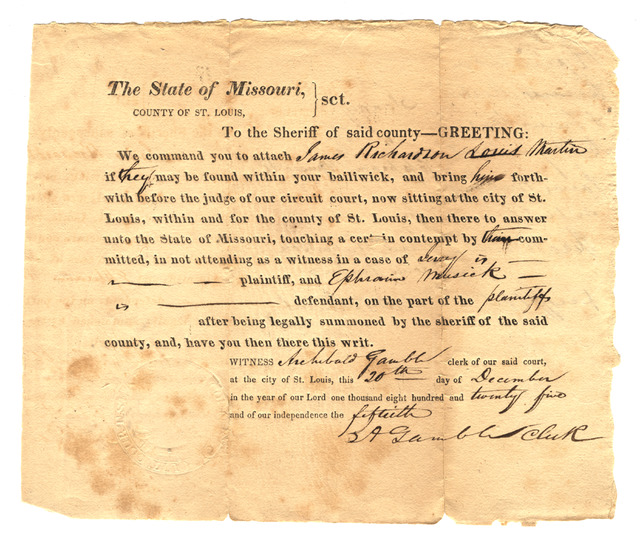 The State of Missouri, } sct.
COUNTY OF ST. LOUIS,
To the Sheriff of said county—GREETING:
We command you to attach James Richardson Louis Martin
if they may be found within your bailiwick, and bring him forth-
with before the judge of our circuit court, now sitting at the city of St.
Louis, within and for the county of St. Louis, then there to answer
unto the State of Missouri, touching a cert in contempt by them com-
mitted, in not attending as a witness in a case of Jerry is
plaintiff, and Ephraim Musick
is defendant, on the part of the plaintiffs
after being legally summoned by the sheriff of the said
county, and, have you then there this writ.
WITNESS Archibald Gamble clerk of our said court,
at the city of St. Louis, this 20th day of December
in the year of our Lord one thousand eight hundred and twenty five
and of our independence the fiftieth
A Gamble Clerk